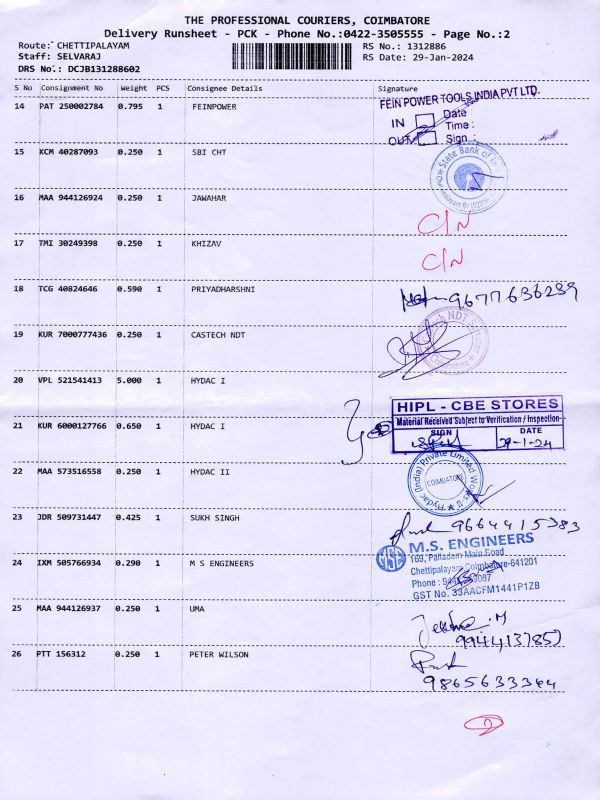 THE PROFESSIONAL COURIERS, COIMBATORE
Delivery Runsheet - PCK - Phone No.:0422-3505555 - Page No.:2
Route: CHETTIPALAYAM RS No.: 1312886
Staff: SELVARAJ RS Date: 29-Jan-2024
DRS No.: DCJB131288602
S No Consignment No Weight PCS Consignee Details Signature
14 PAT 250002784 0.795 1 FEINPOWER
FEIN POWER TOOLS INDIA PVT LTD.
IN Date :
Time :
OUT Sign :
15 KCM 40287093 0.250 1 SBI CHT
State Bank of
16 MAA 944126924 0.250 1 JAWAHAR
C/N
17 TMI 30249398 0.250 1 KHIZAV
C/N
18 TCG 40824646 0.590 1 PRIYADHARSHNI
9677636289
19 KUR 7000777436 0.250 1 CASTECH NDT
NDT
Coimbatore
20 VPL 521541413 5.000 1 HYDAC I
HIPL - CBE STORES
Material Received Subject to Verification / Inspection
SIGN DATE
29-1-24
21 KUR 6000127766 0.650 1 HYDAC I
22 MAA 573516558 0.250 1 HYDAC II
Hydac (India) Private Limited Works II
COIMBATORE
23 JDR 509731447 0.425 1 SUKH SINGH
9664415383
24 IXM 505766934 0.290 1 M S ENGINEERS
MSE
M.S. ENGINEERS
169, Palladam Main Road
Chettipalayam Coimbatore-641201
Phone :
GST No. 33AACFM1441P1ZB
25 MAA 944126937 0.250 1 UMA
9944137857
26 PTT 156312 0.250 1 PETER WILSON
9865633344
2